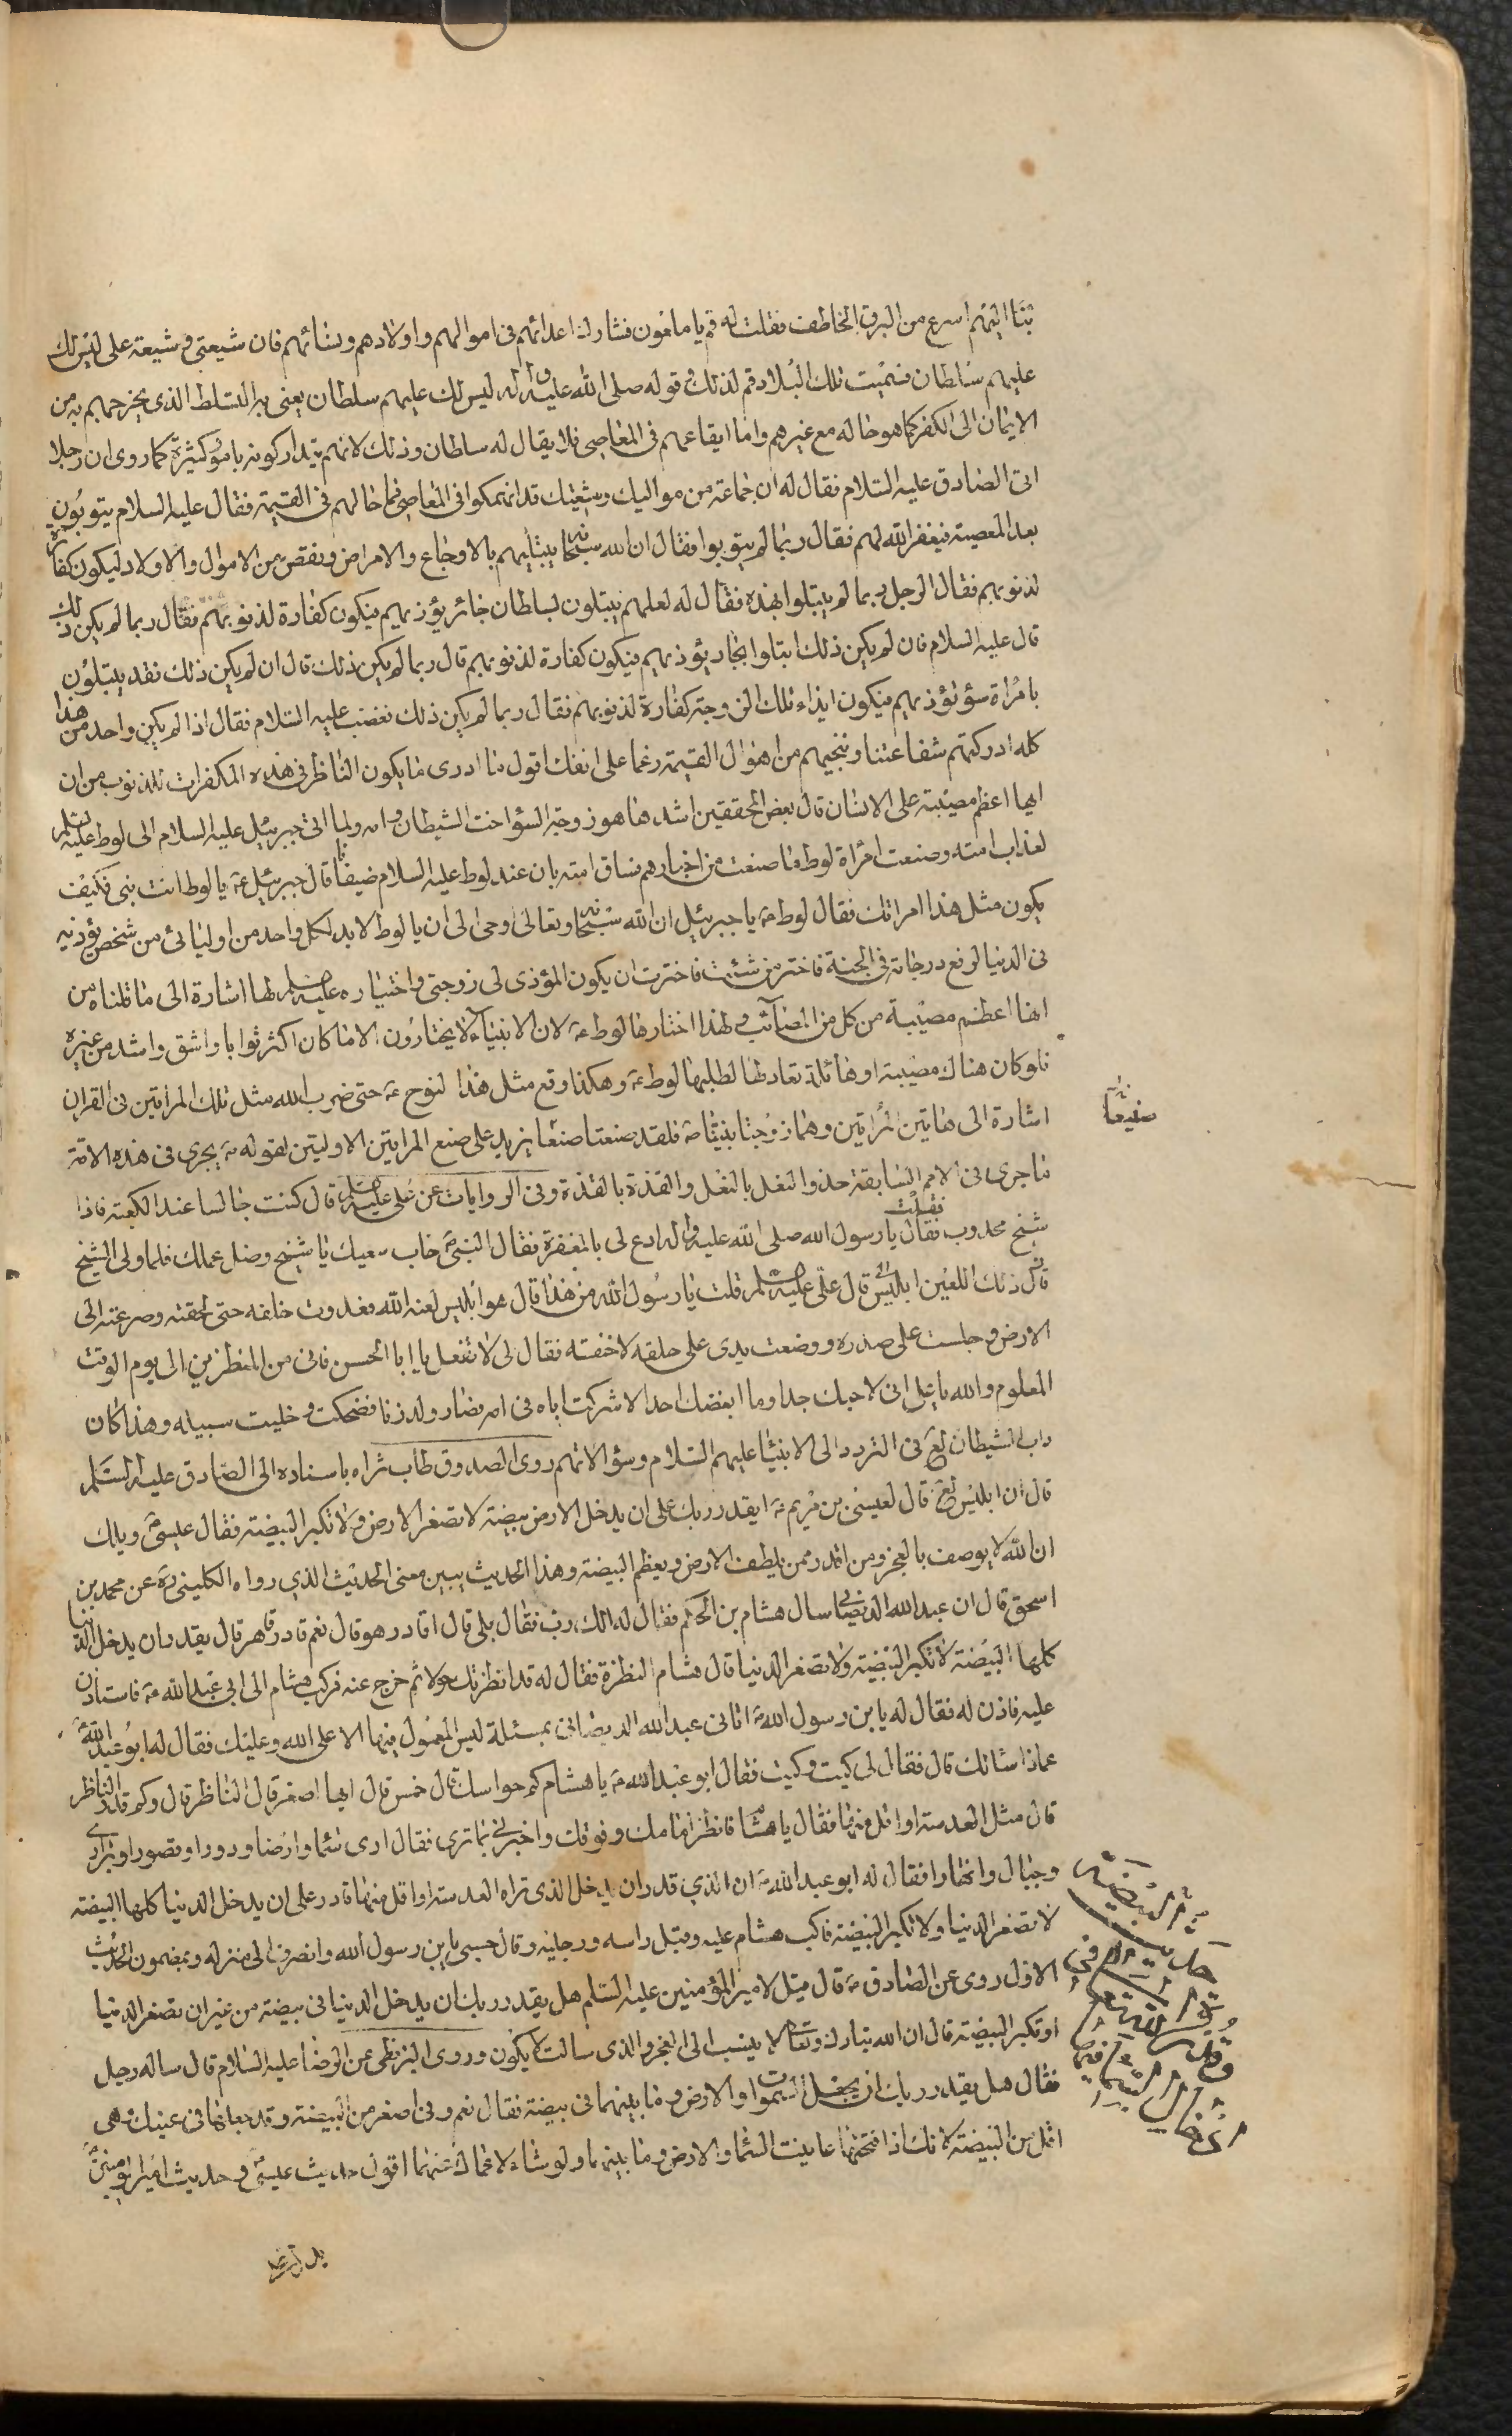 بتنا اليهم اسرع من البرق الخاطف فقلت له قم يا مامون فشارك اعدائهم في اموالهم واولادهم ونسائهم فان شيعتي وشيعة علي ليس لك
عليهم سلطان فسميت تلك البلاد قم لذلك وقوله صلى الله عليه واله ليس لك عليهم سلطان يعني به التسلط الذي يخرجهم به من
الايمان الى الكفر كما هو حاله مع غيرهم واما ايقاعهم في المعاصي فلا يقال له سلطان وذلك لانهم يتداركونه بامور كثيرة كما روى ان رجلا
اتى الصادق عليه السلام فقال له ان جماعة من مواليك وشيعتك قد انهمكوا في المعاصي فما حالهم في القيمة فقال عليه السلام يتوبون
بعد المعصية فيغفر الله لهم فقال ربما لم يتوبوا فقال ان الله سبحانه يبتليهم بالاوجاع والامراض ونقص من الاموال والاولاد ليكون كفارة
لذنوبهم فقال الرجل ربما لم يبتلوا بهذه فقال له لعلهم يبتلون بسلطان جائر يؤذيهم فيكون كفارة لذنوبهم فقال ربما لم يكن ذلك
قال عليه السلام فان لم يكن ذلك ابتلوا بجار يؤذيهم فيكون كفارة لذنوبهم قال ربما لم يكن ذلك قال ان لم يكن ذلك فقد يبتلون
بامراة سؤ تؤذيهم فيكون ايذاء تلك الزوجة كفارة لذنوبهم فقال ربما لم يكن ذلك فغضب عليه السلام فقال اذا لم يكن واحد من هذا
كله ادركتهم شفاعتنا وننجيهم من اهوال القيمة رغما على انفك اقول ما ادرى ما يكون الناظر في هذه المكفرات للذنوب من ان
ايها اعظم مصيبة على الانسان قال بعض المحققين اشدها هو زوجة السؤ اخت الشيطان وامه ولما اتى جبرئيل عليه السلام الى لوط عليه السلم
لعذاب امته وصنعت امراة لوط ما صنعت من اخبارهم بان عند لوط عليه السلام ضيفا قال جبرئيل ع يا لوط انت نبي فكيف
يكون مثل هذا امراتك فقال لوط ع يا جبرئيل ان الله سبحانه وتعالى اوحى الي ان يا لوط لابد لكل واحد من اوليائي من شخص يؤذيه
في الدنيا لرفع درجاته في الجنة فاختر من شئت فاخترت ان يكون المؤذي لي زوجتي واختياره عليه السلم لها اشارة الى ما قلناه من
انها اعظم مصيبة من كل من المصائب ولهذا اختارها لوط ع لان الانبياء لا يختارون الا ما كان اكثر ثوابا واشق واشد من غيره
فلو كان هناك مصيبة او هائلة تعادلها لطلبها لوط ع وهكذا وقع مثل هذا لنوح ع حتى ضرب الله مثل تلك المراتين في القران
اشارة الى هاتين المراتين وهما زوجتا نبينا ص فلقد صنعتا صنعا يزيد على صنع المراتين الاوليتين لقوله ص يجرى في هذه الامة
ما جرى في الامم السابقة حذو النعل بالنعل والقذة بالقذة وفي الروايات عن علي عليه السلم قال كنت جالسا عند الكعبة فاذا
شيخ محدوب فقال يا رسول الله صلى الله عليه واله ادع لي بالمغفرة فقال النبي ص خاب سعيك يا شيخ وضل عملك فلما ولى الشيخ
فقلت
قال ذلك اللعين ابليس قال علي عليه السلم قلت يا رسول الله من هذا قال هو ابليس لعنه الله فعدوت خلفه حتى لحقته وصرعته الى
الارض وجلست على صدره ووضعت يدى على حلقه لاخنقه فقال لي لا تفعل يا ابا الحسن فاني من المنظرين الى يوم الوقت
المعلوم والله يا علي اني لاحبك جدا وما ابغضك احد الا شركت اباه في امه فصار ولد زنا فضحكت وخليت سبيله وهذا كان
داب الشيطان لع في التردد الى الانبياء عليهم السلام وسؤالاتهم روى الصدوق طاب ثراه باسناده الى الصادق عليه السلم
قال ان ابليس لع قال لعيسى بن مريم ع ايقدر ربك على ان يدخل الارض بيضة لا تصغر الارض ولا تكبر البيضة فقال عيسى ع ويلك
ان الله لا يوصف بالعجز ومن اقدر ممن يلطف الارض ويعظم البيضة وهذا الحديث يبين معنى الحديث الذي رواه الكليني ره عن محمد بن
اسحق قال ان عبد الله الديصاني سال هشام بن الحكم فقال له الك رب فقال بلى قال اقادر هو قال نعم قادر قاهر قال يقدر ان يدخل الدنيا
كلها البيضة لا تكبر البيضة ولا تصغر الدنيا قال هشام النظرة فقال له قد انظرتك حولا ثم خرج عنه فركب هشام الى ابي عبد الله ع فاستاذن
عليه فاذن له فقال له يا بن رسول الله ص اتاني عبد الله الديصاني بمسئلة ليس المعول فيها الا على الله وعليك فقال له ابو عبد الله ع
عماذا سئالك قال فقال لي كيت وكيت فقال ابو عبد الله ع يا هشام كم حواسك قال خمس قال ايها اصغر قال الناظر قال وكم قدر الناظر
قال مثل العدسة او اقل منها فقال يا هشام فانظر امامك وفوقك واخبرني بما ترى فقال ارى سماء وارضا ودورا وقصورا وبراري
وجبال وانهارا فقال له ابو عبد الله ع ان الذي قدر ان يدخل الذي تراه العدسة او اقل منها قادر على ان يدخل الدنيا كلها البيضة
لا تصغر الدنيا ولا تكبر البيضة فاكب هشام عليه وقبل راسه ورجليه وقال حسبي يا بن رسول الله وانصرف الى منزله وبمضمون الحديث
الاول روى عن الصادق ع قال قيل لامير المؤمنين عليه السلم هل يقدر ربك ان يدخل الدنيا في بيضة من غير ان تصغر الدنيا
او تكبر البيضة قال ان الله تبارك وتعالى لا ينسب الى العجز والذى سالت لا يكون وروى البزنطى عن الرضا عليه السلام قال ساله رجل
فقال هل يقدر ربك ان يجعل السموات والارض وما بينهما في بيضة فقال نعم وفي اصغر من البيضة وقد جعلها في عينك وهي
اقل من البيضة لانك اذا فتحتها عاينت السماء والارض وما بينهما ولو شاء لاعماك عنها اقول حديث عيسى ع وحديث امير المؤمنين ع
صنيعا